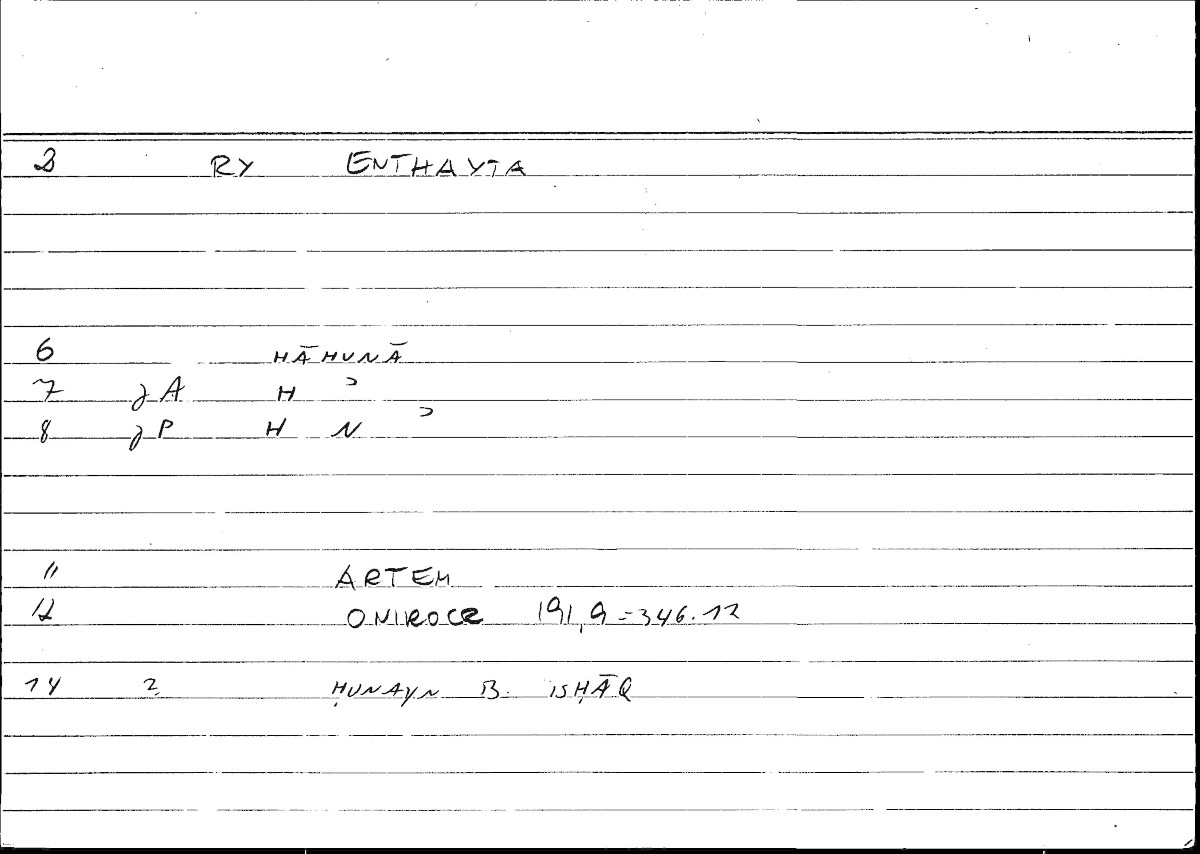 2 RY ENTHAYTA
6 HĀHUNĀ
7 jA H ʾ
8 jP H N ʾ
11 ARTEM
12 ONIROCR 191,9 = 346.12
14 2 ḤUNAYN B. ISḤĀQ